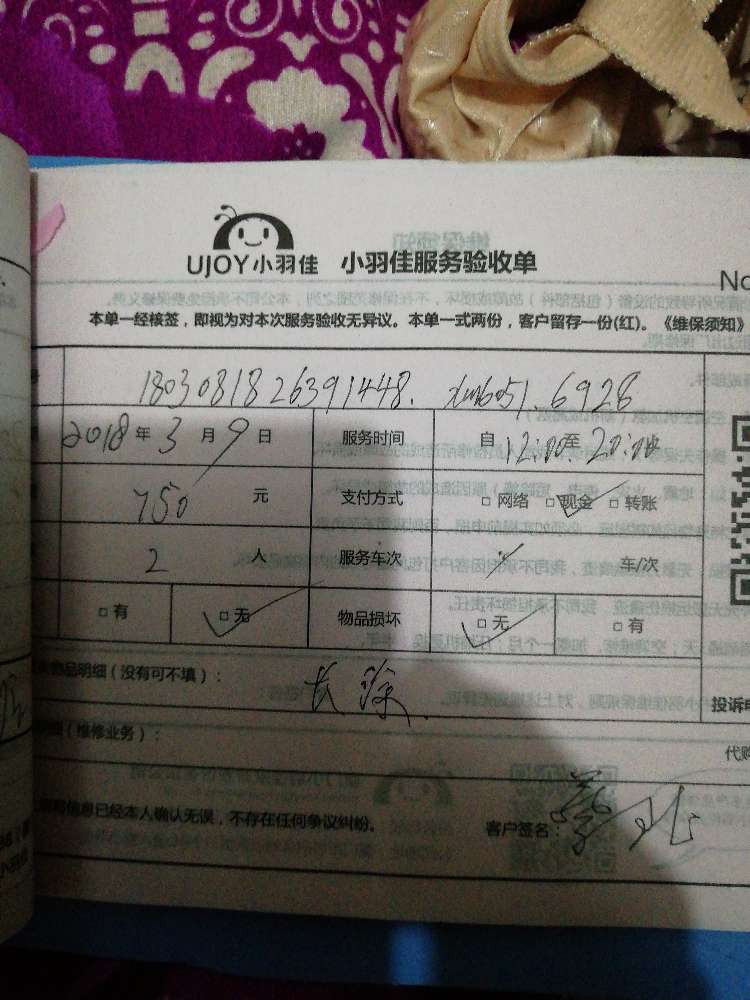 UJOY小羽佳 小羽佳服务验收单
No
本单一经核签，即视为对本次服务验收无异议。本单一式两份，客户留存一份(红)。《维保须知》
1803081826391448. 6051.6928
2018年3月9日 服务时间 自12:00至20:00
750元 支付方式 □网络 □现金 □转账
2人 服务车次 车/次
□有 □无 物品损坏 □无 □有
物品明细（没有可不填）： 长途
投诉电
（维修业务）：
代购
信息已经本人确认无误，不存在任何争议纠纷。 客户签名：